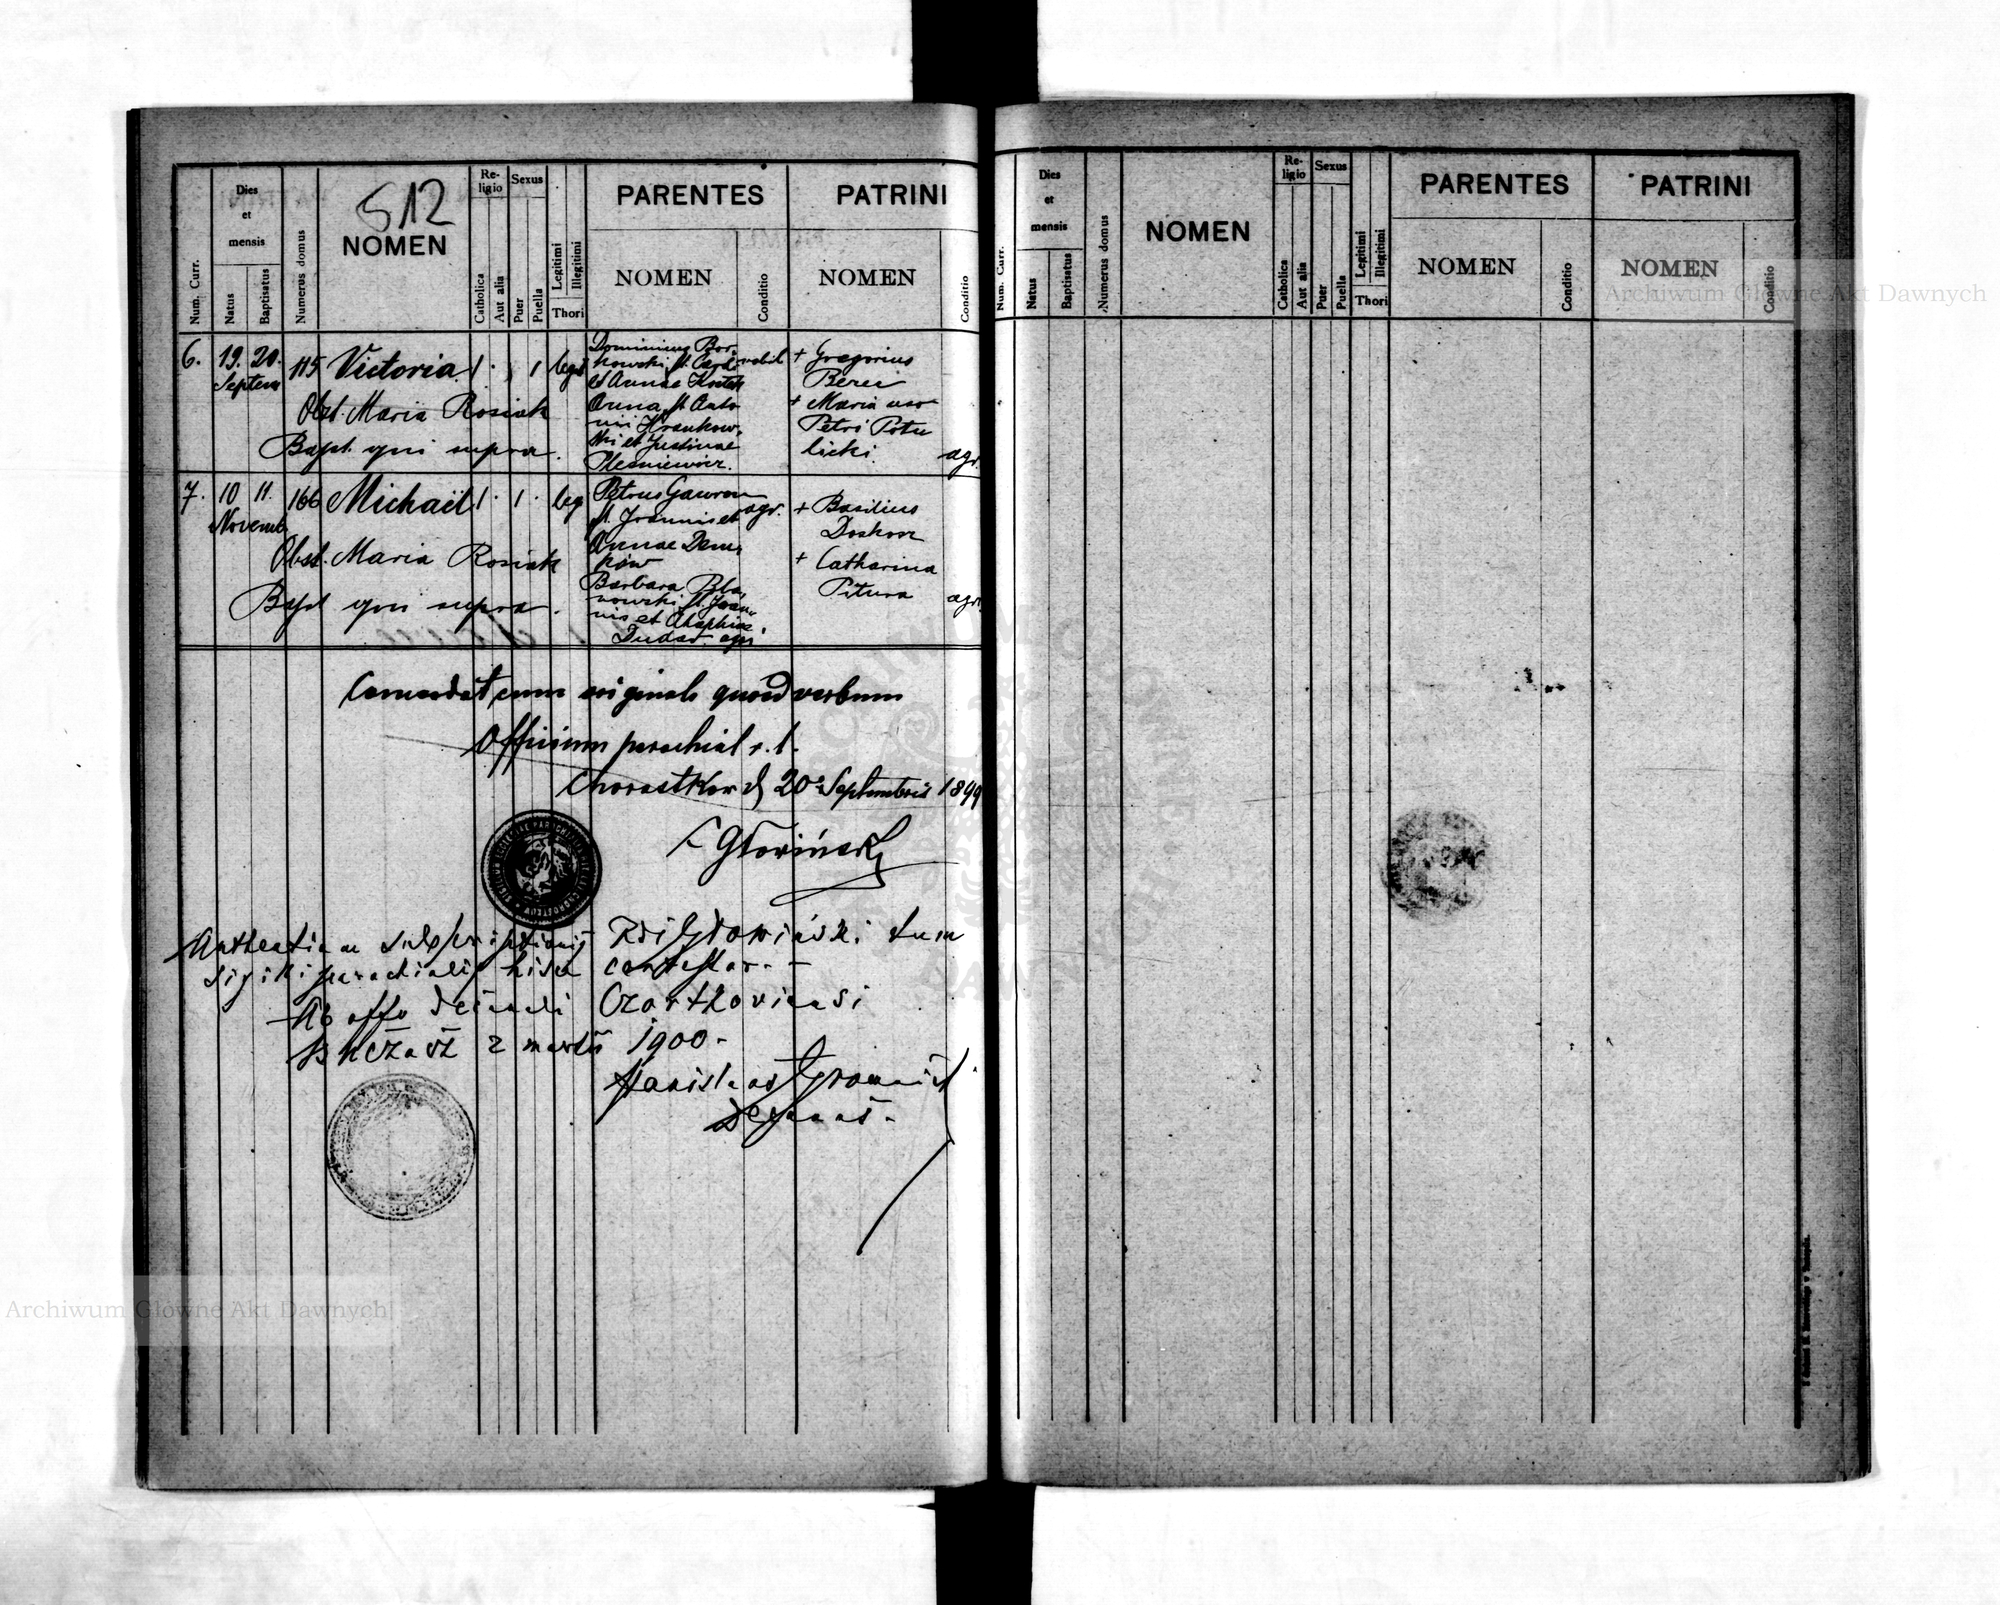 512
Num. Curr.
Dies et mensis
Natus
Baptisatus
Numerus domus
NOMEN
Religio
Catholica
Aut alia
Sexus
Puer
Puella
Legitimi
Illegitimi
Thori
PARENTES
NOMEN
Conditio
PATRINI
NOMEN
Conditio
6. 19. 20. Septem 115 Victoria 1 1
Obst. Maria Rosiak
Bapt. qui supra.
Dominicus Bor
kowski
et Annae
Anna fil. Anto
nii Hrankow
ski et Justinae
Plesniewicz.
+ Gregorius
Berei
+ Maria uxor
Petri Potu
licki.
agr.
7. 10 11. Novemb. 166 Michaël 1 1 leg
Obst. Maria Rosiak
Bapt qui supra.
Petrus Gawron
fil. Joannis et agr.
Annae Dem
kow
Barbara
nowski fil. Joan
nis et
Dudar agr.
+ Basilius
+ Catharina
Pitura
agr.
Concordat cum originali quoad verbum
Officium parochial r. l.
Chorostkow d 20 Septembris 1899
Głowiński
Authenticam subscriptionis Rdi Głowiński tum
sigilli parochialis hisce contestor. -
Ab offo decanali Czortkoviensi
Buczacz 2 martii 1900 -
Stanislaus Gromnicki
Decanus -
Num. Curr.
Dies et mensis
Natus
Baptisatus
Numerus domus
NOMEN
Religio
Catholica
Aut alia
Sexus
Puer
Puella
Legitimi
Illegitimi
Thori
PARENTES
NOMEN
Conditio
PATRINI
NOMEN
Conditio
Archiwum Główne Akt Dawnych
Archiwum Główne Akt Dawnych
ARCHIWUM GŁÓWNE AKT DAWNYCH